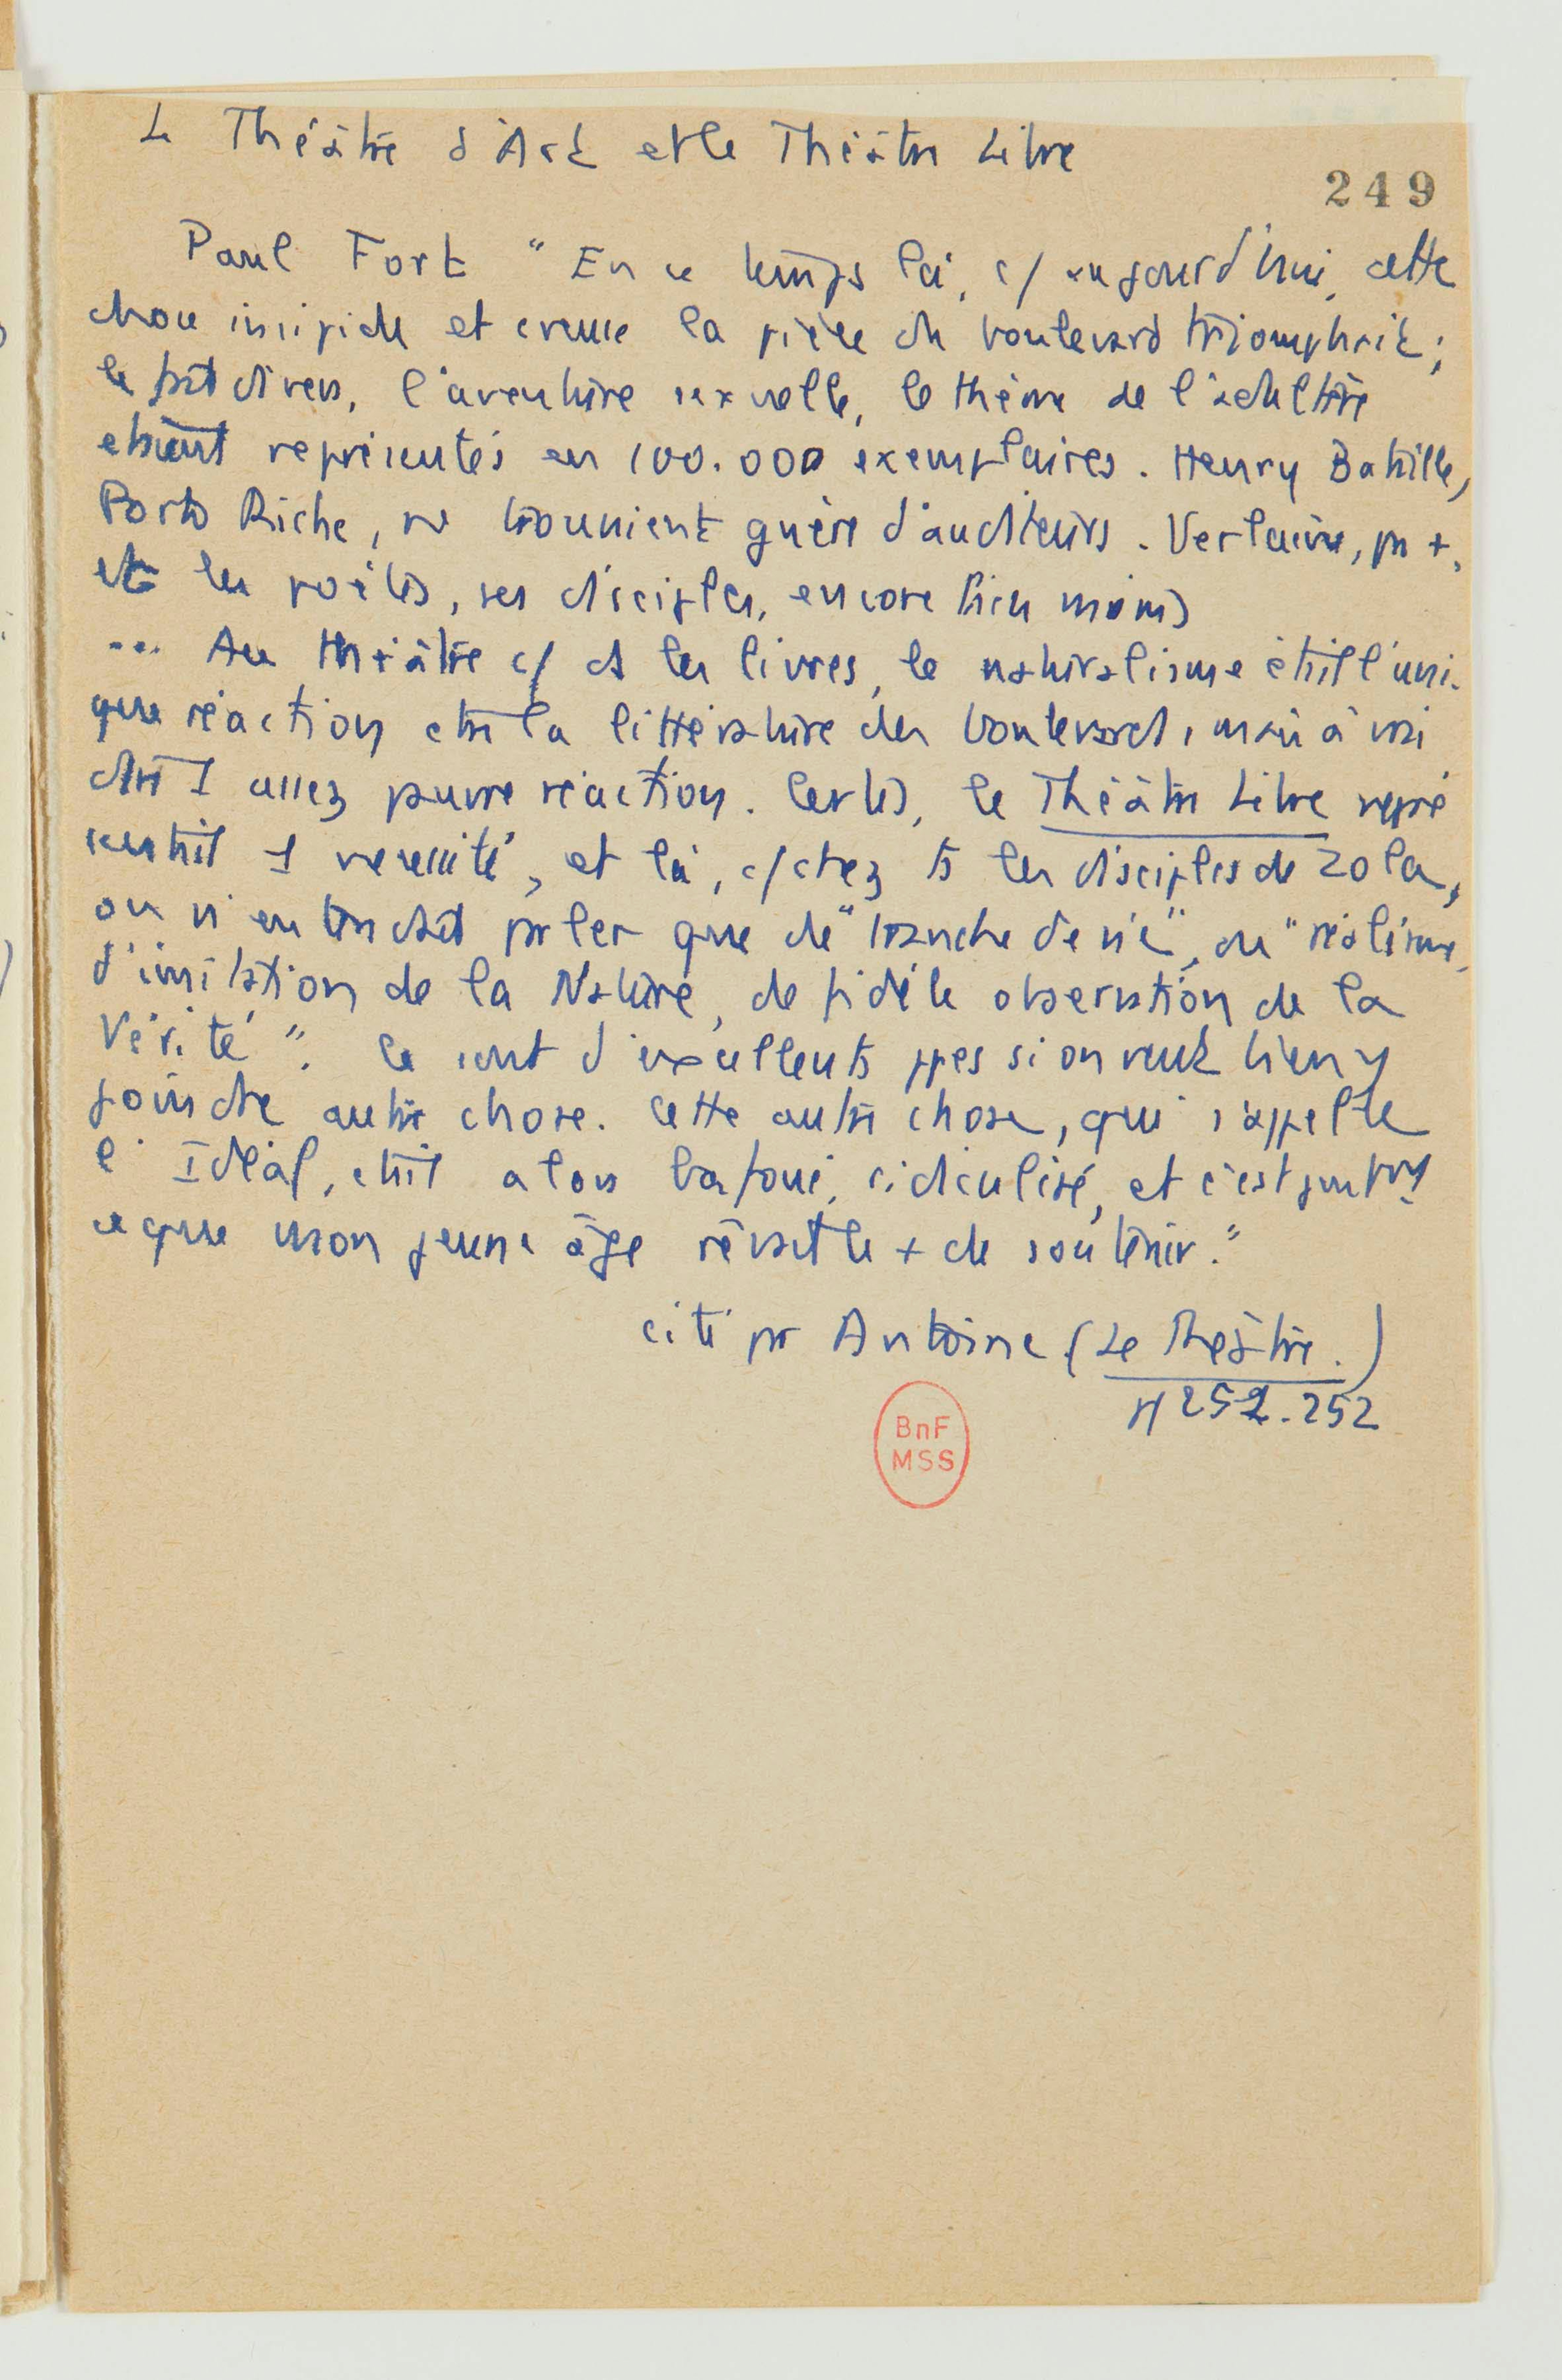 Le Théâtre d'Art et le Théâtre Libre
249
Paul Fort " En ce temps là, c/ aujourd'hui, cette
chose insipide et creuse la pièce de boulevard triomphait ;
le fait divers, l'aventure sexuelle, le thème de l'adultère
étaient représentés en 100.000 exemplaires. Henry Bataille,
Porto Riche, ne trouvaient guère d'auditeurs. Verlaine, pas +,
et les poètes, ses disciples, encore bien moins
... Au théâtre c/ ds les livres, le naturalisme était l'uni-
que réaction ctre la littérature des boulevards, mais à vrai
dire 1 assez pauvre réaction. Certes, le Théâtre Libre repré
sentait 1 nécessité, et là, c/ chez ts les disciples de Zola,
on n'entendait parler que de "tranche de vie", de "réalisme,
d'imitation de la Nature, de fidèle observation de la
Vérité". Ce sont d'excellents ppes si on veut bien y
joindre autre chose. Cette autre chose, qui s'appelle
l'Idéal, était alors bafoué, ridiculisé, et c'est justmt
ce que mon jeune âge rêvait le + de soutenir."
cité par Antoine (Le Théâtre.)
pp 252-252
BnF
MSS